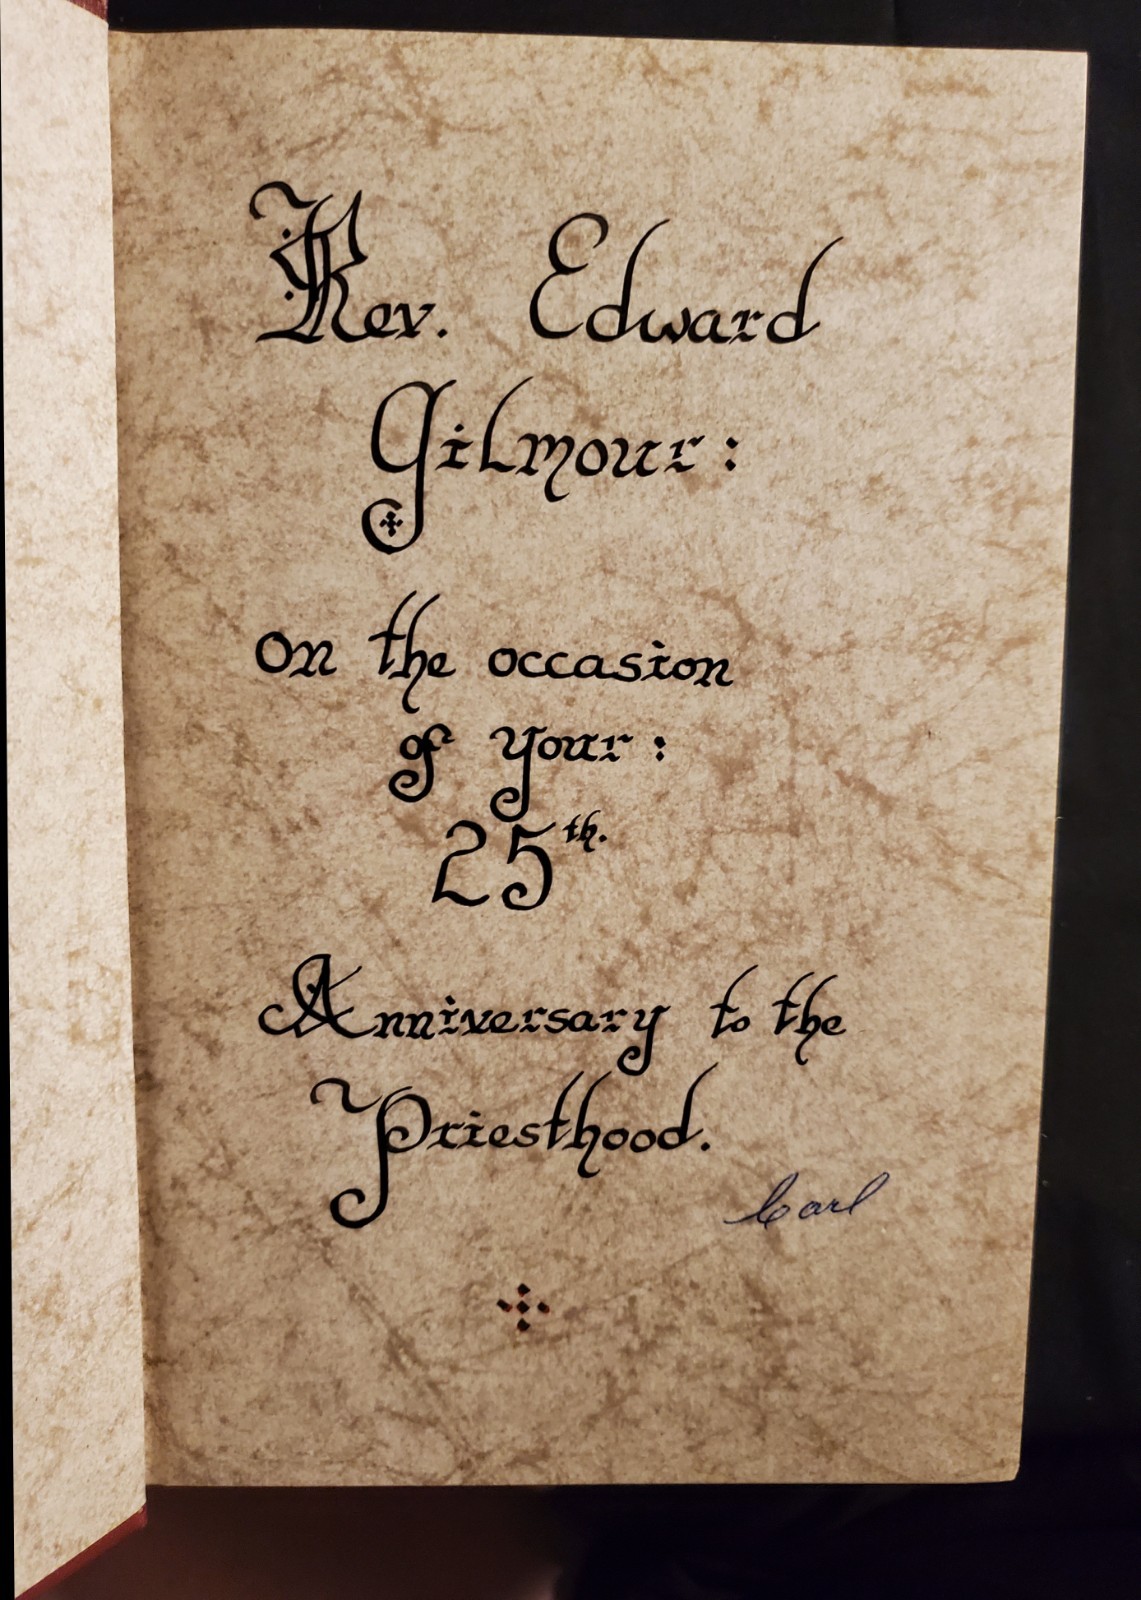 Rev. Edward
Gilmour:
on the occasion
of your:
25th.
Anniversary to the
Priesthood.
Carl